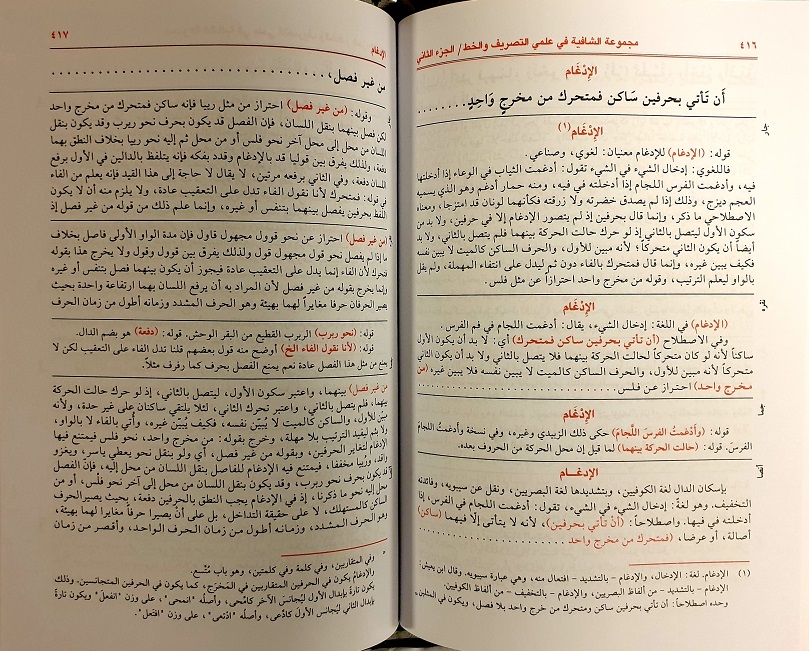 ٤١٦
مجموعة الشافية في علمي التصريف والخط / الجزء الثاني
الإِدْغَام
أَن تَأتي بحرفين سَاكن فمتحرك من مخرجٍ وَاحِدٍ
جار
الإِدْغَام(١)
قوله: (الإدغام) للإدغام معنيان: لغوي، وصناعي.
فاللغوي: إدخال الشيء في الشيء تقول: أدغمت الثياب في الوعاء إذا أدخلتها
فيه، وأدغمت الفرس اللجام إذا أدخلته في فيه، ومنه حمار أدغم وهو الذي يسميه
العجم ديزج، وذلك إذا لم يصدق خضرته ولا زرقته فكأنهما لونان قد امتزجا، ومعناه
الاصطلاحي ما ذكر، وإنما قال بحرفين إذ لم يتصور الإدغام إلا في حرفين، ولا بد من
سكون الأول ليتصل بالثاني إذ لو حرك حالت الحركة بينهما فلم يتصل بالثاني، ولا بد
أيضاً أن يكون الثاني متحركاً؛ لأنه مبين للأول، والحرف الساكن كالميت لا يبين نفسه
فكيف يبين غيره، وإنما قال فمتحرك بالفاء دون ثم ليدل على انتفاء المهملة، ولم يقل
بالواو ليعلم الترتيب، وقوله من مخرج واحد احترازاً عن مثل فلس.
نقره
الإِدْغَام
(الإدغام) في اللغة: إدخال الشيء، يقال: أدغمت اللجام في فم الفرس.
وفي الاصطلاح (أن تأتي بحرفين ساكن فمتحرك) أي: لا بد أن يكون الأول
ساكناً لأنه لو كان متحركاً لحالت الحركة بينهما فلا يتصل بالثاني ولا بد أن يكون الثاني
متحركاً لأنه مبين للأول، والحرف الساكن كالميت لا يبين نفسه فلا يبين غيره (من
مخرج واحد) احتراز عن فلس
جما
الإِدْغَام
قوله: (وأَدْغمْتُ الفرسَ اللِّجامَ) حكى ذلك الزبيدي وغيره، وفي نسخة وأدغمت اللجامُ
الفرسَ. قوله: (حالت الحركة بينهما) لما قيل إن محل الحركة من الحروف بعده.
أنصا
الإدغـام
بإسكان الدال لغة الكوفيين، وبتشديدها لغة البصريين، ونقل عن سيبويه، وفائدته
التخفيف. وهو لغةً: إدخال الشيء في الشيء، تقول: أدغمت اللجام في الفرس، إذا
أدخلته في فيها. واصطلاحاً: (أَنْ تأتي بحرفين)، لأنه لا يتأتى إلّا فيهما (ساكن)
أصالة، أو عرضا، (فمتحرك من مخرج واحد
(١) الإدغام. لغة: الإدخال، والإدغام - بالتشديد - افتعال منه، وهي عبارة سيبويه. وقال ابن يعيش:
الإدغام - بالتشديد - من ألفاظ البصريين، والإدغام - بالتخفيف - من ألفاظ الكوفيين.
وحده اصطلاحاً: أن تأتي بحرفين ساكن ومتحرك من خرج واحد بلا فصل، ويكون في المثلين
الإدغام
٤١٧
من غير فصل،
وقوله: (من غير فصل) احتراز من مثل ريبا فإنه ساكن فمتحرك من مخرج واحد
لكن فصل بينهما بنقل اللسان، فإن الفصل قد يكون بحرف نحو ربرب وقد يكون بنقل
اللسان من محل إلى محل آخر نحو فلس أو من محل ثم إليه نحو ريبا بخلاف النطق بهما
دفعة، ولذلك يفرق بين قولنا قد بالإدغام وقدد بفكه فإنه يتلفظ بالدالين في الأول برفع
اللسان دفعة، وفي الثاني برفعه مرتين، لا يقال لا حاجة إلى هذا القيد فإنه يعلم من الفاء
في قوله: فمتحرك لأنا نقول الفاء تدل على التعقيب عادة، ولا يلزم منه أن لا يكون
اللفظ بحرفين يفصل بينهما بتنفس أو غيره، وإنما علم ذلك من قوله من غير فصل إذ
(من غير فصل) احتراز عن نحو قوول مجهول قاول فإن مدة الواو الأولى فاصل بخلاف
ما إذا لم يفصل نحو قول مجهول قول ولذلك يفرق بين قوول وقول ولا يخرج هذا بقوله
فتحرك لأن الفاء إنما يدل على التعقيب عادة فيجوز أن يكون بينهما فصل بتنفس أو غيره
وإنما يخرج بقوله من غير فصل لأن المراد به أن يرفع اللسان بهما ارتفاعة واحدة بحيث
يصير الحرفان حرفاً مغايراً لهما بهيئة وهو الحرف المشدد وزمانه أطول من زمان الحرف
قوله: (نحو ربرب) الربرب القطيع من البقر الوحش. قوله: (دفعة) هو بضم الدال.
قوله: (لأنا نقول الفاء الخ) أوضح منه قول بعضهم قلنا تدل الفاء على التعقيب لكن لا
يمنع من مثل هذا الفصل عادة نعم يمنع الفصل بحرف كما رفرف مثلاً.
من غير فصل) بينهما، واعتبر سكون الأول، ليتصل بالثاني، إذ لو حرك حالت الحركة
بينهما، فلم يتصل بالثاني، واعتبر تحرك الثاني، لئلا يلتقي ساكنان على غير حدة، ولأنه
مبين للأول، والساكن كالميت لا يُبيّن نفسه، فكيف يُبيّن غيره، وأتي بالفاء لا بالواو،
ولا بثم ليفيد الترتيب بلا مهلة، وخرج بقوله: من مخرج واحد، نحو فلس فيمتنع فيها
الإدغام لتغاير الحرفين، وبقوله من غير فصل، أي ولو بنقل نحو يعطي ياسر، ويغزو
واقد، وريبا مخففا، فيمتنع فيه الإدغام للفاصل بنقل اللسان من محل إليه، فإنّ الفصل
قد يكون بحرف نحو ربرب، وقد يكون بنقل اللسان من محل إلى آخر نحو فلْس، أو من
محل إليه نحو ما ذكرنا، إذ في الإدغام يجب النطق بالحرفين دفعة، بحيث يصير الحرف
الساكن كالمستهلك، لا على حقيقة التداخل، بل على أنْ يصيرا حرفاً مغايراً لهما بهيئة،
وهو الحرف المشدد، وزمـانه أطول من زمان الحرف الواحد، وأقصر من زمان
وفي المتقاربين، وفي كلمة وفي كلمتين، وهو باب مُتّسع.
والإدغامُ يكون في الحرفين المتقاربين في المَخرَج، كما يكون في الحرفين المتجانسين. وذلك
يكون تارةً بإبدال الأول ليُجانسَ الآخر كامّحى، وأصلُه "انمحى"، على وزن "انفعل" ويكون تارةً
بإبدال الثاني ليُجانس الأولَ كادَّعى، وأصلُه "ادْتَعى"، على وزن "افتعل".